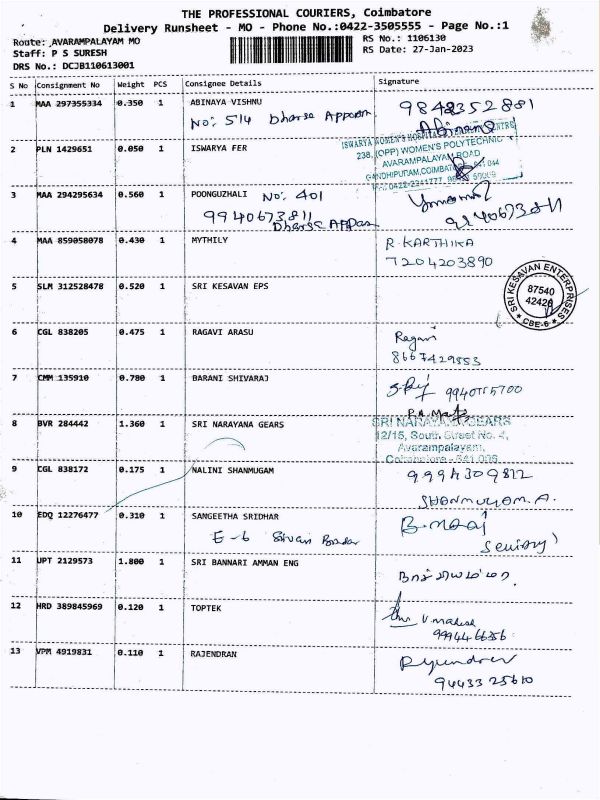 THE PROFESSIONAL COURIERS, Coimbatore
Delivery Runsheet - MO - Phone No.:0422-3505555 - Page No.:1
Route: AVARAMPALAYAM MO
RS No.: 1106130
Staff: P S SURESH
RS Date: 27-Jan-2023
DRS No.: DCJB110613001
S No Consignment No Weight PCS Consignee Details Signature
1 MAA 297355334 0.350 1 ABINAYA VISHNU 9842352881
No: 514
2 PLN 1429651 0.050 1 ISWARYA FER
ISWARYA WOMEN'S
238, (OPP) WOMEN'S POLYTECHNIC
AVARAMPALAYAM ROAD
GANDHIPURAM, COIMBATORE
3 MAA 294295634 0.560 1 POONGUZHALI No: 401
9940673811 9940673811
4 MAA 859058078 0.430 1 MYTHILY R. KARTHIKA
7204203890
5 SLM 312528478 0.520 1 SRI KESAVAN EPS
SRI KESAVAN ENTERPRISES
87540
42420
CBE-6
6 CGL 838205 0.475 1 RAGAVI ARASU Ragavi
8667429553
7 CMM 135910 0.780 1 BARANI SHIVARAJ
8 BVR 284442 1.360 1 SRI NARAYANA GEARS SRI NARAYANA GEARS
12/15, South Street No. 4,
Avarampalayam,
Coimbatore - 641 006
9 CGL 838172 0.175 1 NALINI SHANMUGAM 9994309812
SHANMUGAM. A.
10 EDQ 12276477 0.310 1 SANGEETHA SRIDHAR
E-6
11 UPT 2129573 1.800 1 SRI BANNARI AMMAN ENG
12 HRD 389845969 0.120 1 TOPTEK V. mahesh
13 VPM 4919831 0.110 1 RAJENDRAN
94433 25610